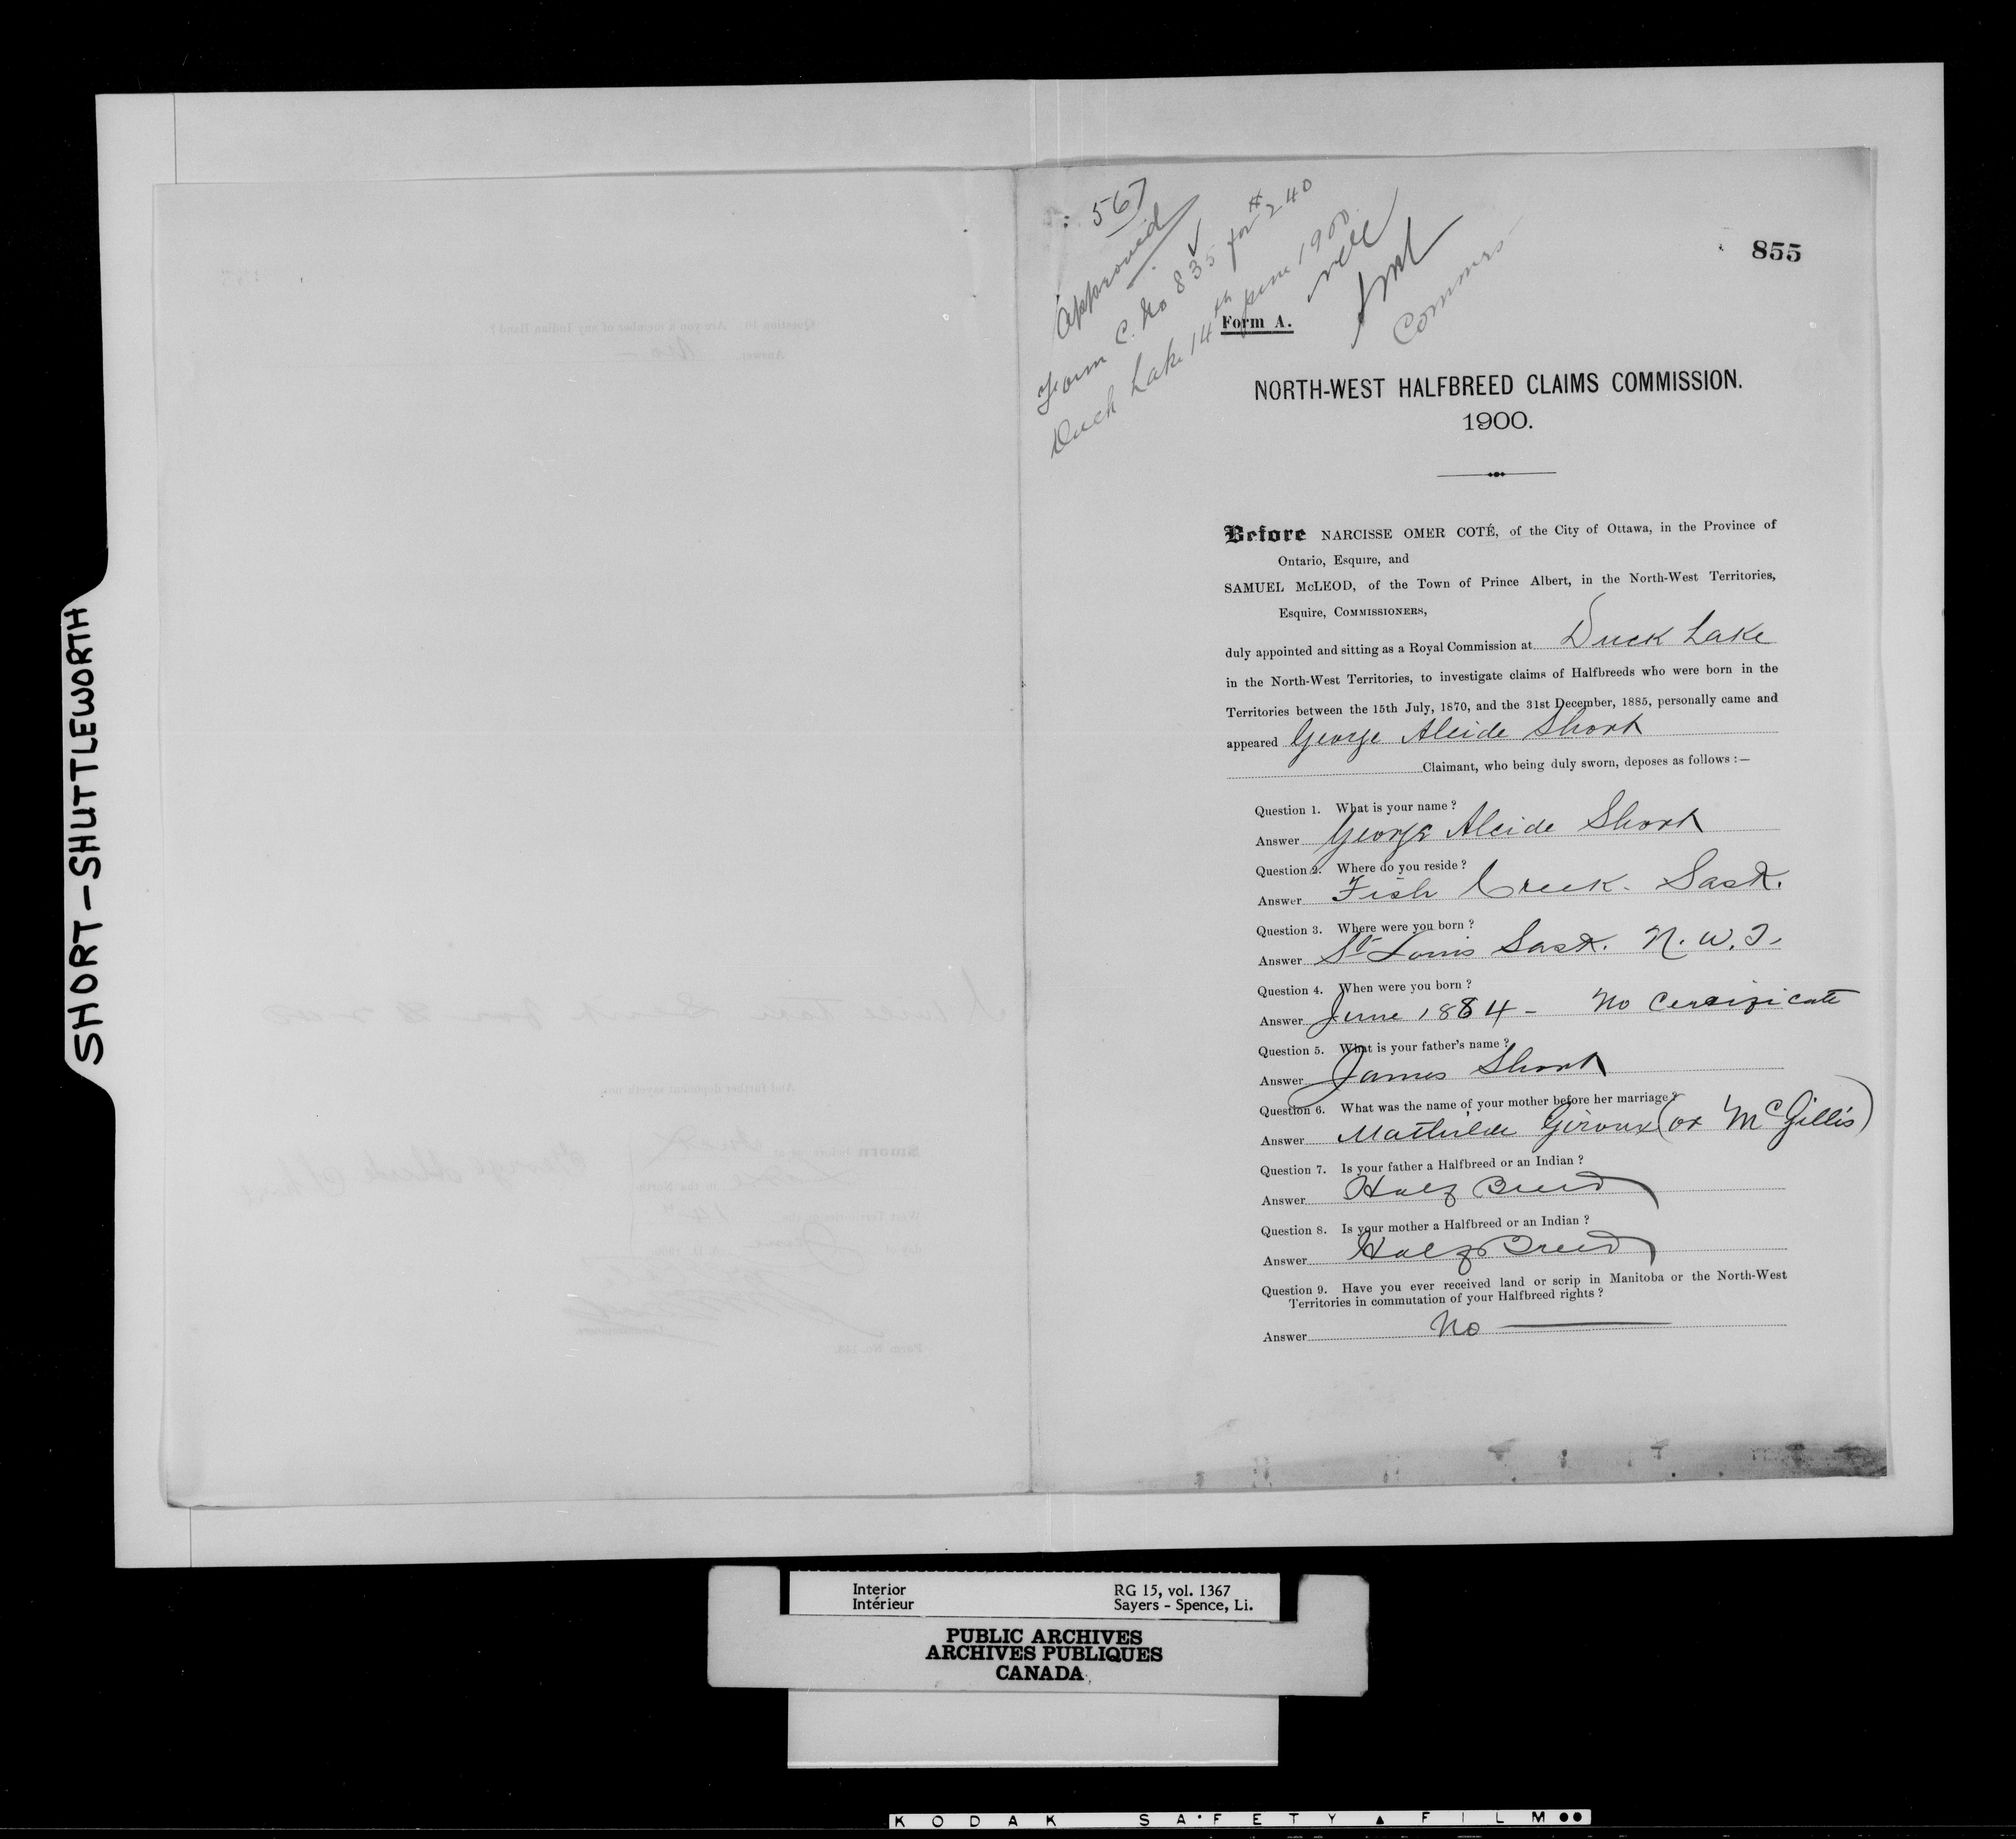 SHORT-SHUTTLEWORTH
567
Approved
Form C. No 835 for $240
Duck Lake 14th June 1900
Commrs
855
Form A.
NORTH-WEST HALFBREED CLAIMS COMMISSION.
1900.
Before NARCISSE OMER COTÉ, of the City of Ottawa, in the Province of
Ontario, Esquire, and
SAMUEL McLEOD, of the Town of Prince Albert, in the North-West Territories,
Esquire, COMMISSIONERS,
duly appointed and sitting as a Royal Commission at Duck Lake
in the North-West Territories, to investigate claims of Halfbreeds who were born in the
Territories between the 15th July, 1870, and the 31st December, 1885, personally came and
appeared George Alcide Short
Claimant, who being duly sworn, deposes as follows :—
Question 1. What is your name ?
Answer George Alcide Short
Question 2. Where do you reside ?
Answer Fish Creek. Sask.
Question 3. Where were you born ?
Answer St Louis Sask. N. W. T.
Question 4. When were you born ?
Answer June 1884 - No Certificate
Question 5. What is your father's name ?
Answer James Short
Question 6. What was the name of your mother before her marriage ?
Answer Mathilde Giroux (or McGillis)
Question 7. Is your father a Halfbreed or an Indian ?
Answer Half Breed
Question 8. Is your mother a Halfbreed or an Indian ?
Answer Half Breed
Question 9. Have you ever received land or scrip in Manitoba or the North-West
Territories in commutation of your Halfbreed rights ?
Answer No
Interior RG 15, vol. 1367
Intérieur Sayers - Spence, Li.
PUBLIC ARCHIVES
ARCHIVES PUBLIQUES
CANADA
KODAK SAFETY FILM